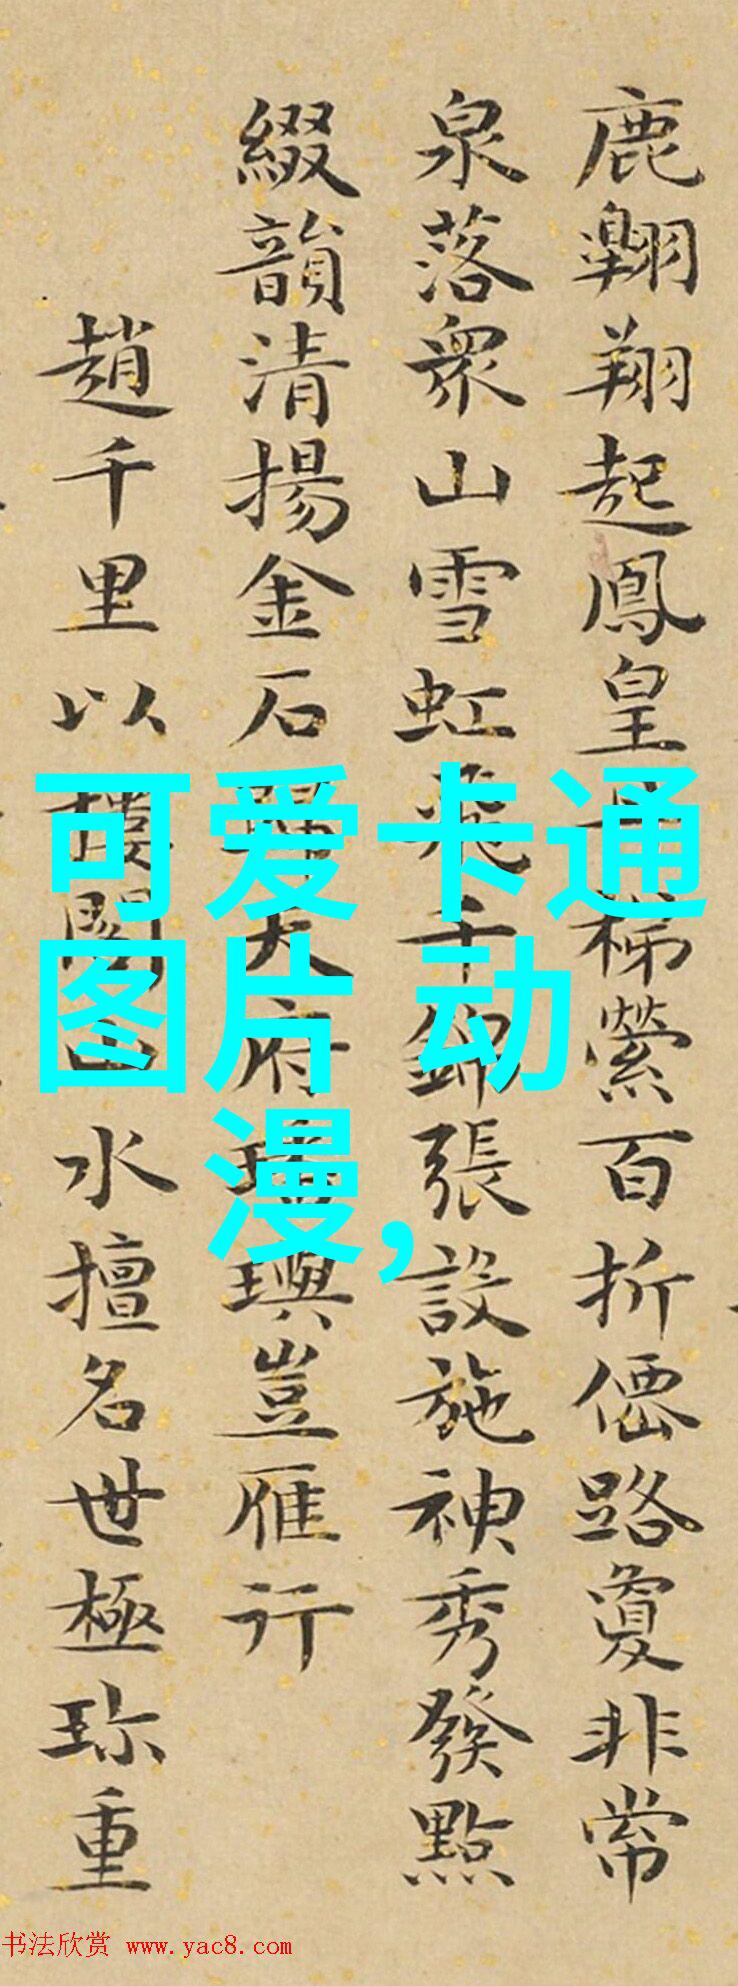 鹿翱翔起鳳皇丹梯縈百折僊路敻非常
泉落衆山雪虹飛千錦張設施神秀發點
綴韻清揚金石歸大府璵豈雁行
趙千里以樓閣山水擅名世極珎重
可爱卡通
图片 动
漫,
书法欣赏 www.yac8.com